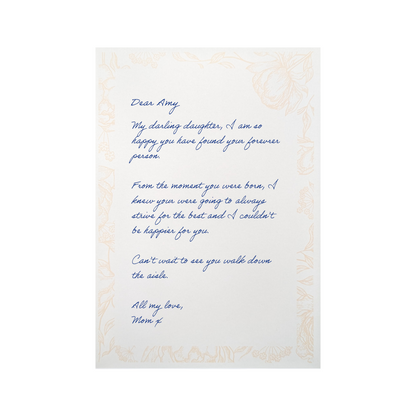 Dear Amy
My darling daughter, I am so
happy you have found your forever
person.
From the moment you were born, I
knew your were going to always
strive for the best and I couldn't
be happier for you.
Can't wait to see you walk down
the aisle.
All my love,
Mom x